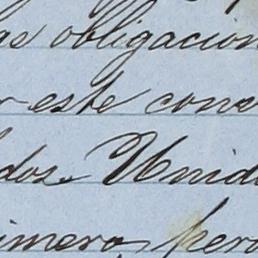 as obligacion
r este conv
dos Unid
imero, pero